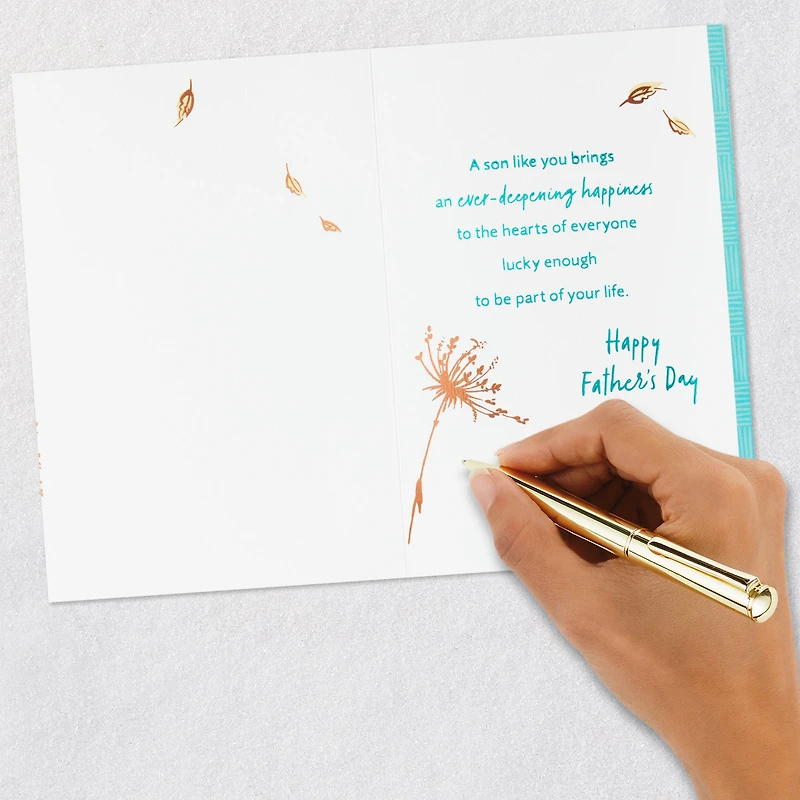 A son like you brings
an ever-deepening happiness
to the hearts of everyone
lucky enough
to be part of your life.
Happy
Father's Day